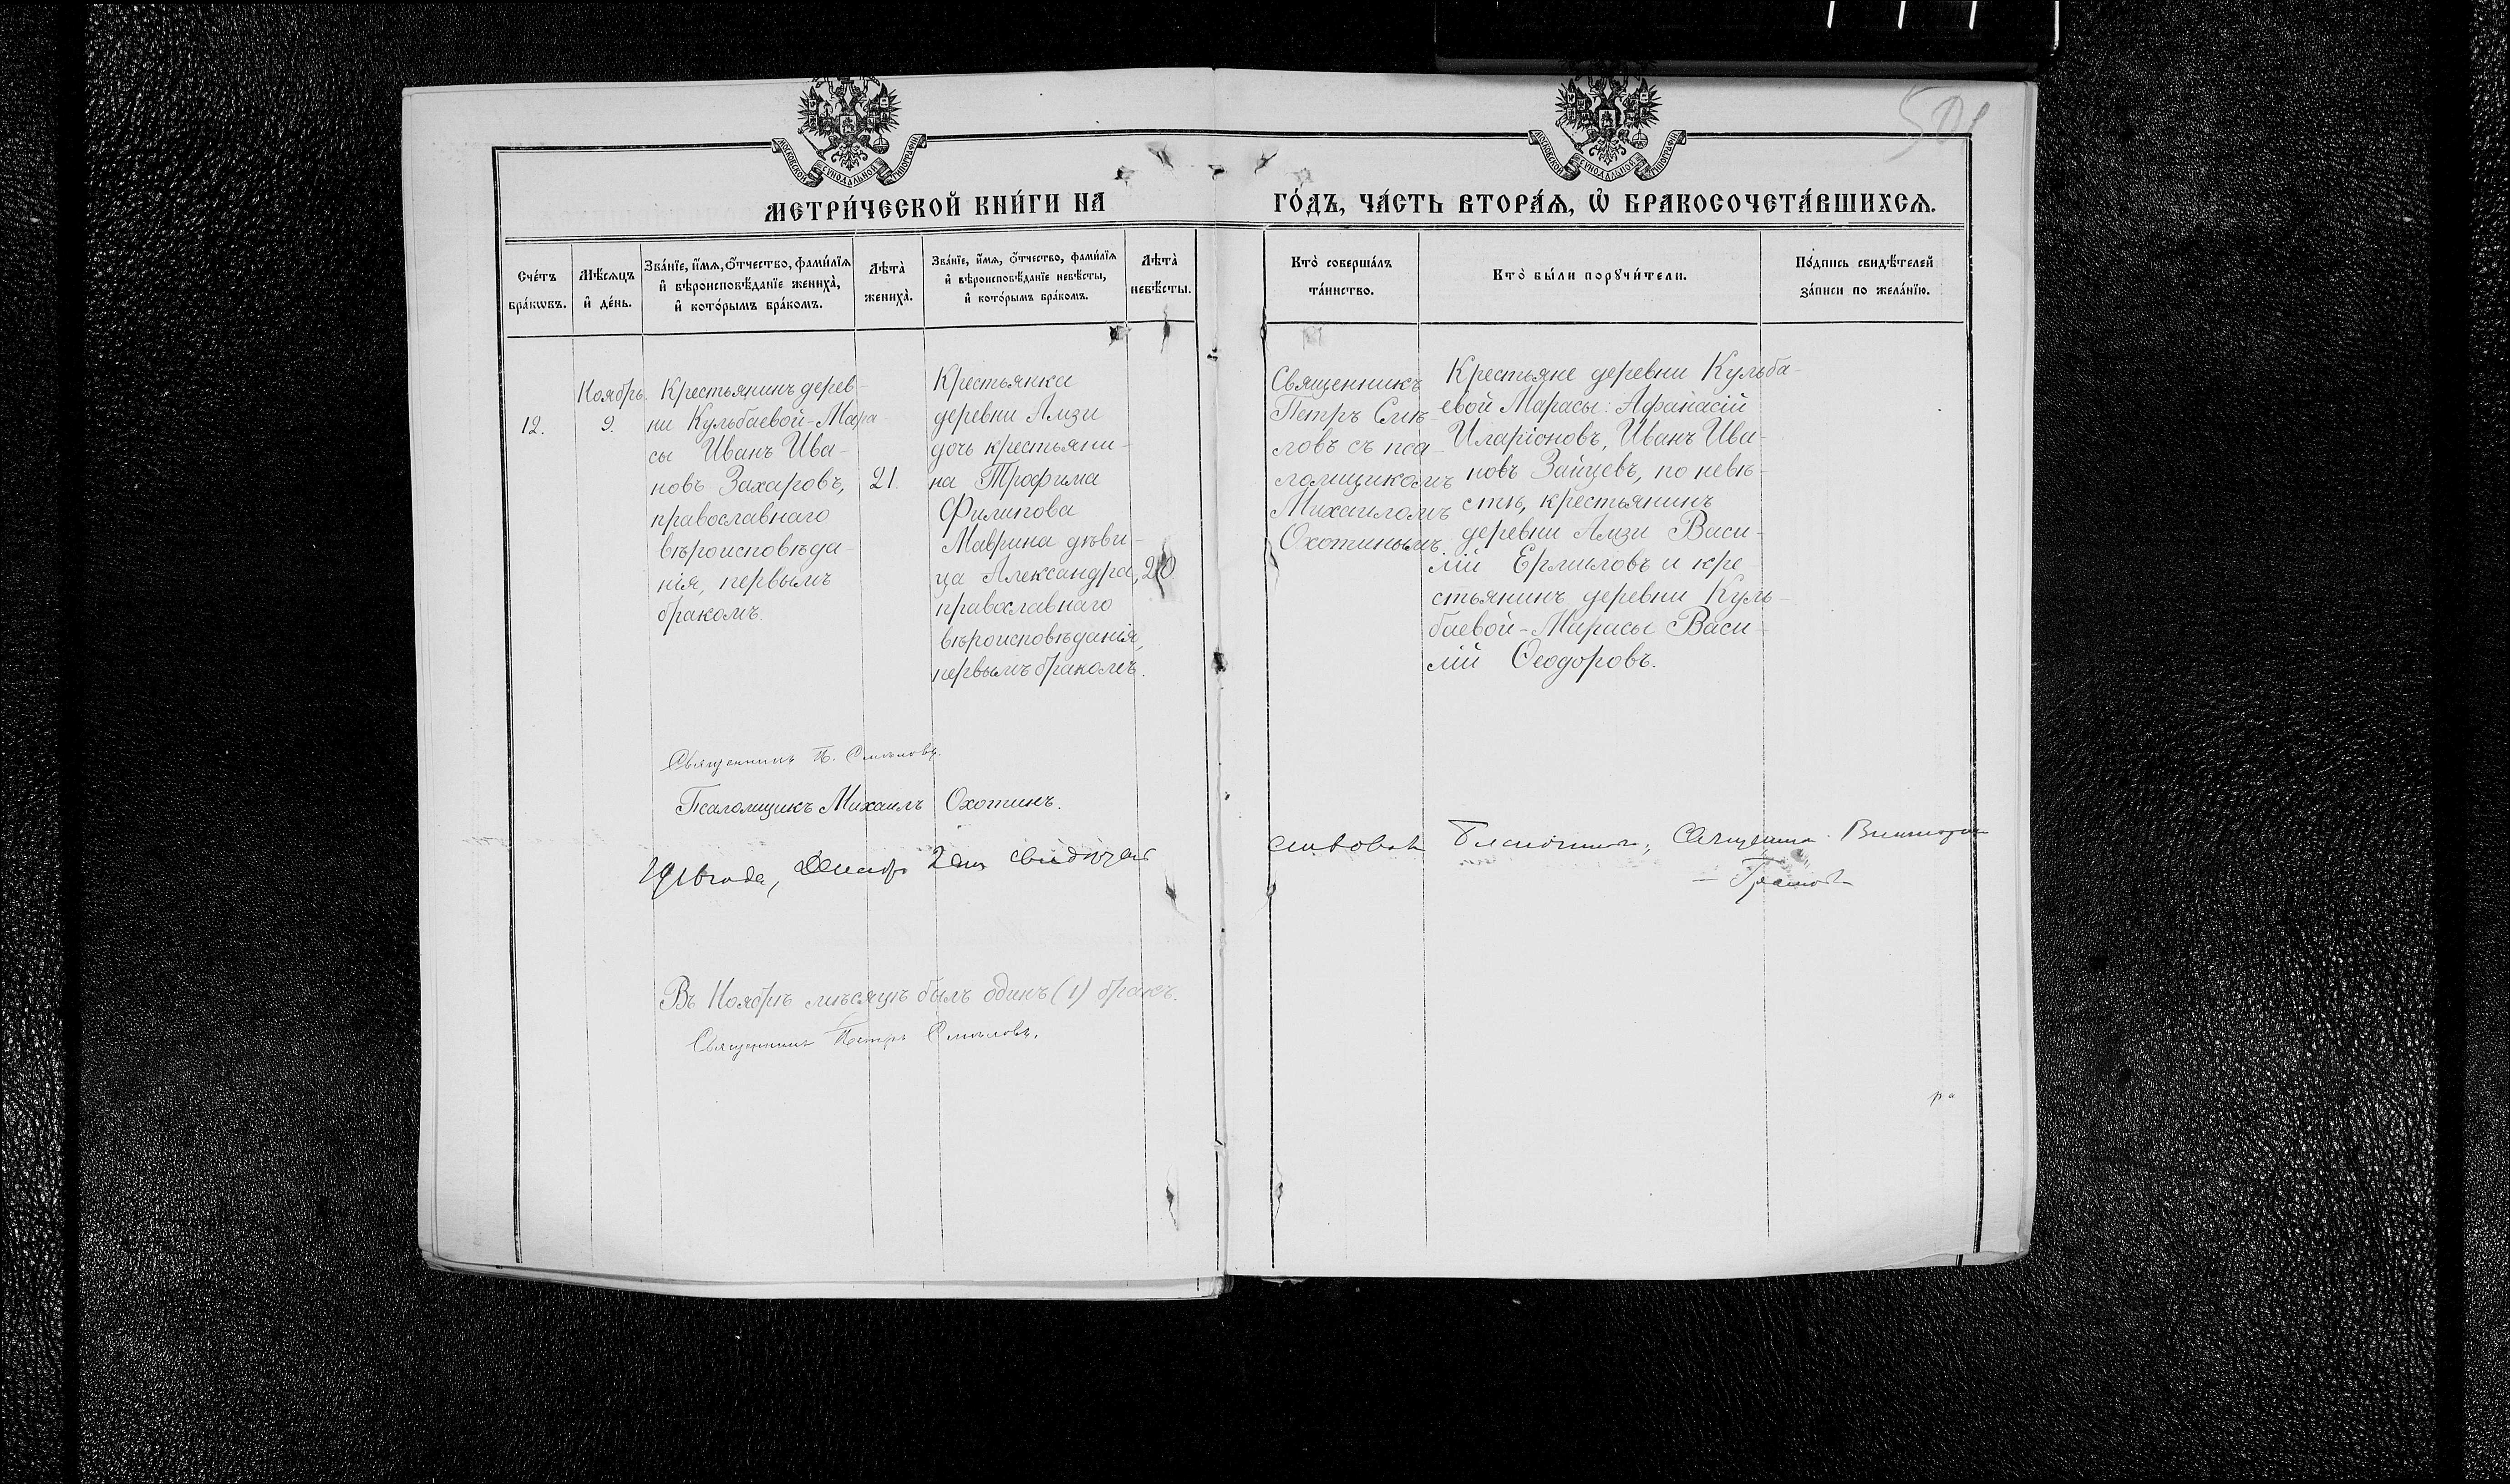 501
МОСКОВСКОЙ СѴНОДАЛЬНОЙ ТИПОГРАФІИ
МОСКОВСКОЙ СѴНОДАЛЬНОЙ ТИПОГРАФІИ
МЕТРИ́ЧЕСКОЙ КНИ́ГИ НА ГО́ДЪ, ЧА́СТЬ ВТОРА́Ѧ, Ѡ҆ БРАКОСОЧЕТА́ВШИХСѦ.
Сче́тъ бра́кѡвъ.
Мѣ́сѧцъ и҆ де́нь.
Зва́нїе, и҆́мѧ, ѻ҆́тчество, фами́лїѧ
и҆ вѣроисповѣ́данїе жениха̀,
и҆ кото́рымъ бра́комъ.
Лѣта̀ жениха̀.
Зва́нїе, и҆́мѧ, ѻ҆́тчество, фами́лїѧ
и҆ вѣроисповѣ́данїе невѣ́сты,
и҆ кото́рымъ бра́комъ.
Лѣта̀ невѣ́сты.
Кто̀ соверша́лъ
та́инство.
Кто̀ бы́ли порꙋчи́тели.
По́дпись свидѣ́телей
за́писи по жела́нїю.
12.
Ноябрь.
9.
Крестьянинъ дерев-
ни Кульбаевой-Мара-
сы Иванъ Ива-
новъ Захаровъ,
православнаго
вѣроисповѣда-
нія, первымъ
бракомъ.
21.
Крестьянка
деревни Амзи
дочь крестьяни-
на Трофима
Филипова
Маврина дѣви-
ца Александра,
православнаго
вѣроисповѣданія,
первымъ бракомъ.
20
Священникъ
Петръ Смѣ-
ловъ съ пса-
ломщикомъ
Михаиломъ
Охотинымъ.
Крестьяне деревни Кульба-
евой Марасы: Афанасій
Иларіоновъ, Иванъ Ива-
новъ Зайцевъ, по невѣ-
стѣ, крестьянинъ
деревни Амзи Васи-
лій Ермиловъ и кре-
стьянинъ деревни Куль-
баевой-Марасы Васи-
лій Ѳеодоровъ.
Священникъ П. Смѣловъ.
Псаломщикъ Михаилъ Охотинъ.
1916 года, 2 дня
Въ Ноябрѣ мѣсяцѣ былъ одинъ (1) бракъ.
Священникъ Петръ Смѣловъ.
ра